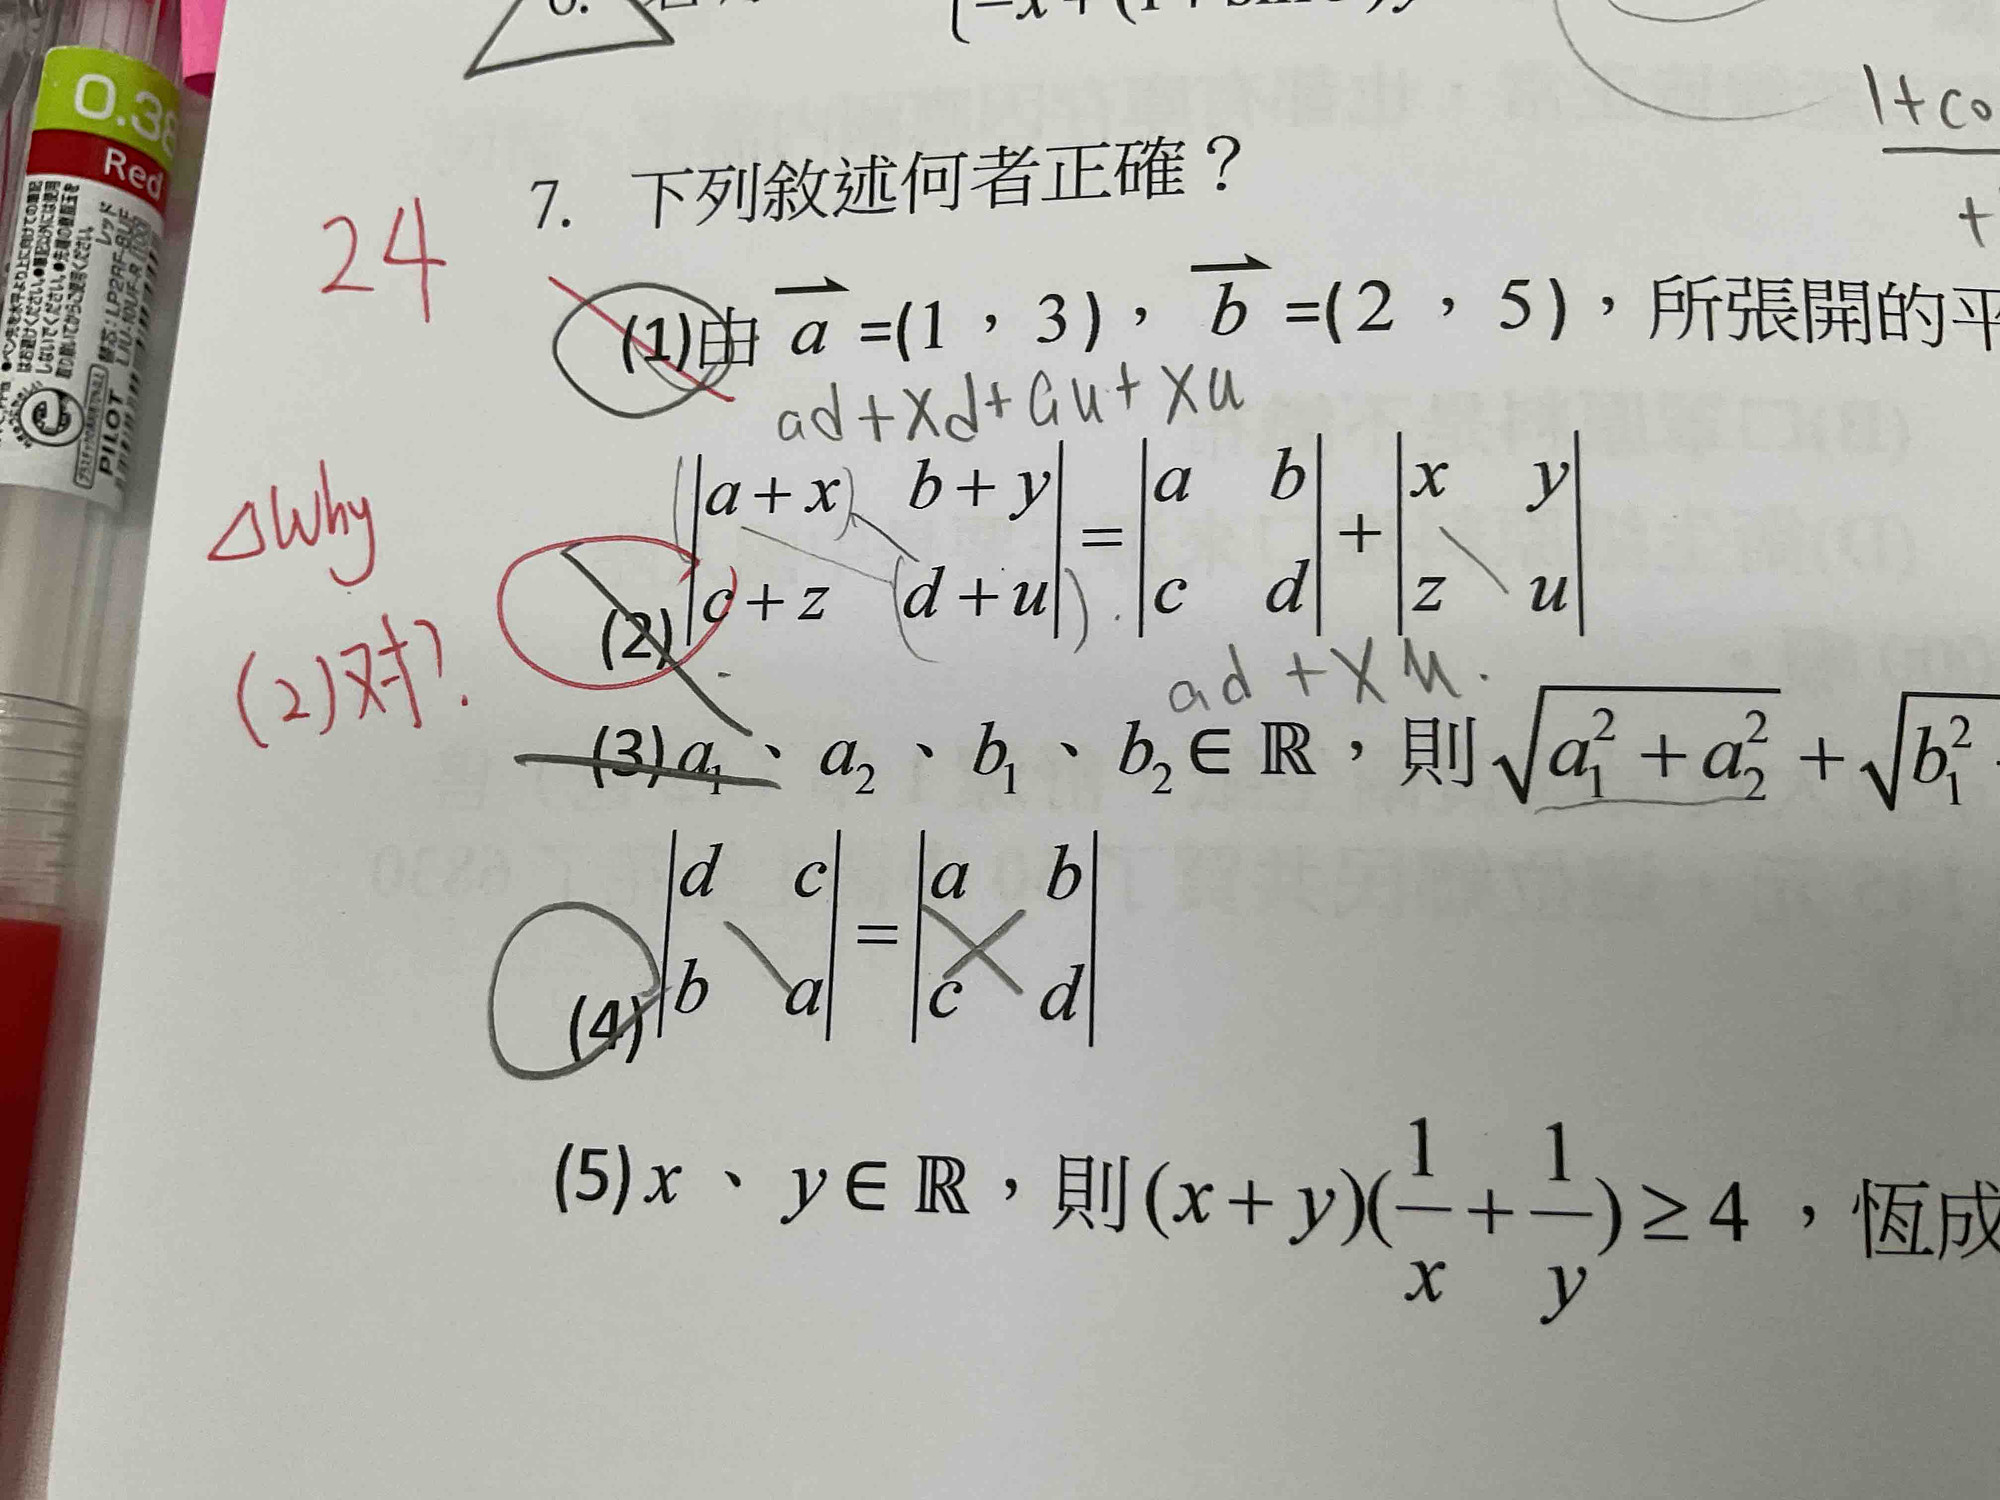 0.38
Red
PILOT
1+co
+
7. 下列敘述何者正確？
24
(1)由 a =(1，3)，b =(2，5)，所張開的平
ad+xd+au+xu
|a+x b+y| = |a b| + |x y|
(2) |c+z d+u| |c d| |z u|
△Why
(2)对?
ad+xu.
(3) a₁、a₂、b₁、b₂∈ℝ，則√a₁²+a₂² + √b₁²
|d c| = |a b|
(4) |b a| |c d|
(5) x、y∈ℝ，則(x+y)(1/x+1/y)≥4，恆成